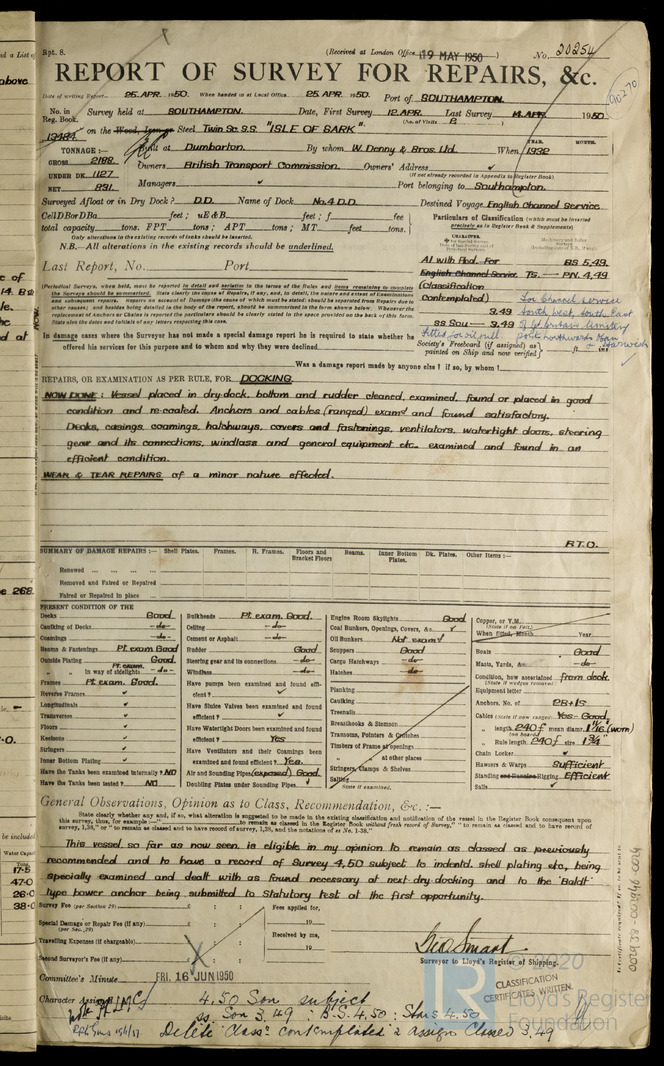 Rpt. 8.
(Received at London Office 19 MAY 1950)
No. 20254
REPORT OF SURVEY FOR REPAIRS, &c.
Date of writing Report 25 APR. 1950. When handed in at Local Office 25 APR. 1950. Port of SOUTHAMPTON.
No. in Reg. Book. Survey held at SOUTHAMPTON. Date, First Survey 12 APR. Last Survey 14 APR. 1950
(No. of Visits 8)
on the Wood, Iron or Steel Twin Sc. S.S. "ISLE OF SARK".
TONNAGE:— Built at Dumbarton. By whom W. Denny & Bros. Ltd. When 1932
YEAR. MONTH.
GROSS 2188. Owners British Transport Commission. Owners' Address
(If not already recorded in Appendix to Register Book)
UNDER DK. 1127
NET 831. Managers Port belonging to Southampton.
Surveyed Afloat or in Dry Dock? D.D. Name of Dock No. 4 D.D. Destined Voyage English Channel Service
Cell D B or D Ba feet; uE & B feet; f feet
total capacity tons. FPT tons; APT tons; MT feet tons.
Only alterations in the existing records of tanks should be inserted.
N.B.—All alterations in the existing records should be underlined.
Particulars of Classification (which must be inserted precisely as in Register Book & Supplements)
Last Report, No. Port
A1 with Fbd. For BS 5,49.
English Channel Service TS. — PN. 4,49
(Classification
Contemplated)
3.49
ss Sou — 3,49
fitted for oil fuel.
Society's Freeboard (if assigned) as painted on Ship and now verified
In damage cases where the Surveyor has not made a special damage report he is required to state whether he
offered his services for this purpose and to whom and why they were declined
Was a damage report made by anyone else? if so, by whom?
REPAIRS, OR EXAMINATION AS PER RULE, FOR DOCKING
NOW DONE: Vessel placed in dry-dock, bottom and rudder cleaned, examined, found or placed in good
condition and re-coated. Anchors and cables (ranged) examd and found satisfactory.
Decks, casings, coamings, hatchways, covers and fastenings, ventilators, watertight doors, steering
gear and its connections, windlass and general equipment etc. examined and found in an
efficient condition.
WEAR & TEAR REPAIRS of a minor nature effected.
P.T.O.
SUMMARY OF DAMAGE REPAIRS:— Shell Plates. Frames. R. Frames. Floors and Bracket Floors Beams. Inner Bottom Plates. Dk. Plates. Other Items:—
Renewed
Removed and Faired or Repaired
Faired or Repaired in place
PRESENT CONDITION OF THE
Decks Good
Caulking of Decks —do—
Coamings —do—
Beams & Fastenings Pt exam Good
Outside Plating Good.
" " in way of sidelights Pt. exam. —do—
Frames Pt exam. Good.
Reverse Frames
Longitudinals
Transverses
Floors
Keelsons
Stringers
Inner Bottom Plating
Have the Tanks been examined internally? NO
Have the Tanks been tested? NO
Bulkheads Pt exam. Good.
Ceiling —do—
Cement or Asphalt —do—
Rudder Good
Steering gear and its connections —do—
Windlass —do—
Have pumps been examined and found efficient?
Have Sluice Valves been examined and found efficient?
Have Watertight Doors been examined and found efficient? Yes
Have Ventilators and their Coamings been examined and found efficient? Yes.
Air and Sounding Pipes (exposed) Good.
Doubling Plates under Sounding Pipes
Engine Room Skylights Good
Coal Bunkers, Openings, Covers, &c.
Oil Bunkers Not examd
Scuppers Good
Cargo Hatchways —do—
Hatches —do—
Planking
Caulking
Treenails
Breasthooks & Stemson
Transoms, Pointers & Crutches
Timbers of Frame at openings
" " at other places
Stringers, Clamps & Shelves
Salting
State if examined.
Copper, or Y.M.
(State if on Felt)
When fitted, Month Year
Boats Good
Masts, Yards, &c. —do—
Condition, how ascertained from deck.
(State if wedges removed)
Equipment letter
Anchors, No. of 2B+1S
Cables (State if now ranged) Yes — Good
" length 240 f mean diam. 1 11/16 (worn)
(on board)
" Rule length 240 f size 1 3/4"
Chain Locker
Hawsers & Warps Sufficient
Standing and Running Rigging Efficient
Sails
General Observations, Opinion as to Class, Recommendation, &c.:—
State clearly whether any and, if so, what alteration is suggested to be made in the existing classification and notification of the vessel in the Register Book consequent upon
This vessel so far as now seen, is eligible in my opinion to remain as classed as previously
recommended and to have a record of Survey 4,50 subject to indentd. shell plating etc, being
specially examined and dealt with as found necessary at next dry-docking and to the "Baldt"
type bower anchor being submitted to Statutory test at the first opportunity.
Survey Fee (per Section 29) Fees applied for,
Special Damage or Repair Fee (if any) 19
(per Sec. 29)
Travelling Expenses (if chargeable) Received by me,
Second Surveyor's Fee (if any) 19
Geo Smart
Surveyor to Lloyd's Register of Shipping.
Committee's Minute FRI. 16 JUN 1950
CLASSIFICATION CERTIFICATES WRITTEN.
Character Assigned + LMC
4.50 Son subject
ss. Son 3.49 : B.S. 4.50 : Shts 4.50
Delete "Class" contemplated & assign Classed 3.49
© 2020
Lloyd's Register
Foundation
002938-002948-0024